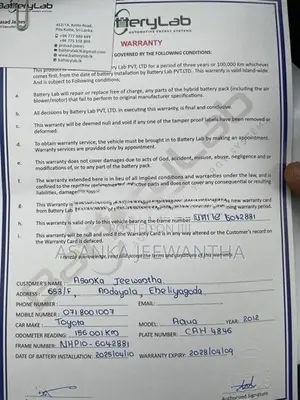 BatteryLab
Jerad James
622/1A, Kotte Road,
Pita Kotte, Sri Lanka
+94 777 589 689
batterylab.lk
BatteryLab
AUTOMOTIVE ENERGY SYSTEMS
WARRANTY
GOVERNED BY THE FOLLOWING CONDITIONS:
This product is Battery Lab PVT, LTD for a period of three years or 100,000 Km whichever
comes first, from the date of battery installation by Battery Lab PVT.LTD. This warranty is valid Island-wide.
And is subject to following conditions.
a. Battery Lab will repair or replace free of charge, any parts of the hybrid battery pack (including the air
blower/motor) that fail to perform to original manufacturer specifications.
b. All decisions by Battery Lab Pvt, Ltd. in executing this warranty, is final and conclusive.
c. This warranty will be deemed null and void if any one of the tamper proof labels have been removed or
defaced.
d. To obtain warranty service, the vehicle must be brought in to Battery Lab by making an appointment.
Warranty services are provided only by appointment.
e. This warranty does not cover damages due to acts of God, accident, misuse, abuse, negligence and or
modifications of, or to any part of the battery pack.
f. The warranty extended here is in lieu of all implied conditions and warranties under the law, and is
confined to the defective parts and does not cover any consequential or resulting
liabilities, damages
g. This Warranty is new warranty card
from Battery Lab warranty period.
h. This warranty is valid only to this vehicle bearing the frame number NHP10 6042881
ASANKA JEEWANTHA
i. This warranty will be null and void if the Warranty altered or the Customer's record on
the Warranty Card is defaced.
I hereby acknowledge and accept the terms and conditions of this warranty.
CUSTOMER'S NAME: Asanka Jeewantha.
ADDRESS: 653/F, Andayala, Eheliyagoda
PHONE NUMBER: EMAIL:
MOBILE NUMBER: 0718001007
CAR MAKE: Toyota MODEL: Aqua YEAR: 2012
ODOMETER READING: 156001KM PLATE NUMBER: CAH 4846
FRAME NUMBER: NHP10-6042881
DATE OF BATTERY INSTALLATION: 2025/04/10 WARRANTY EXPIRY: 2028/04/09
Authorized Signature